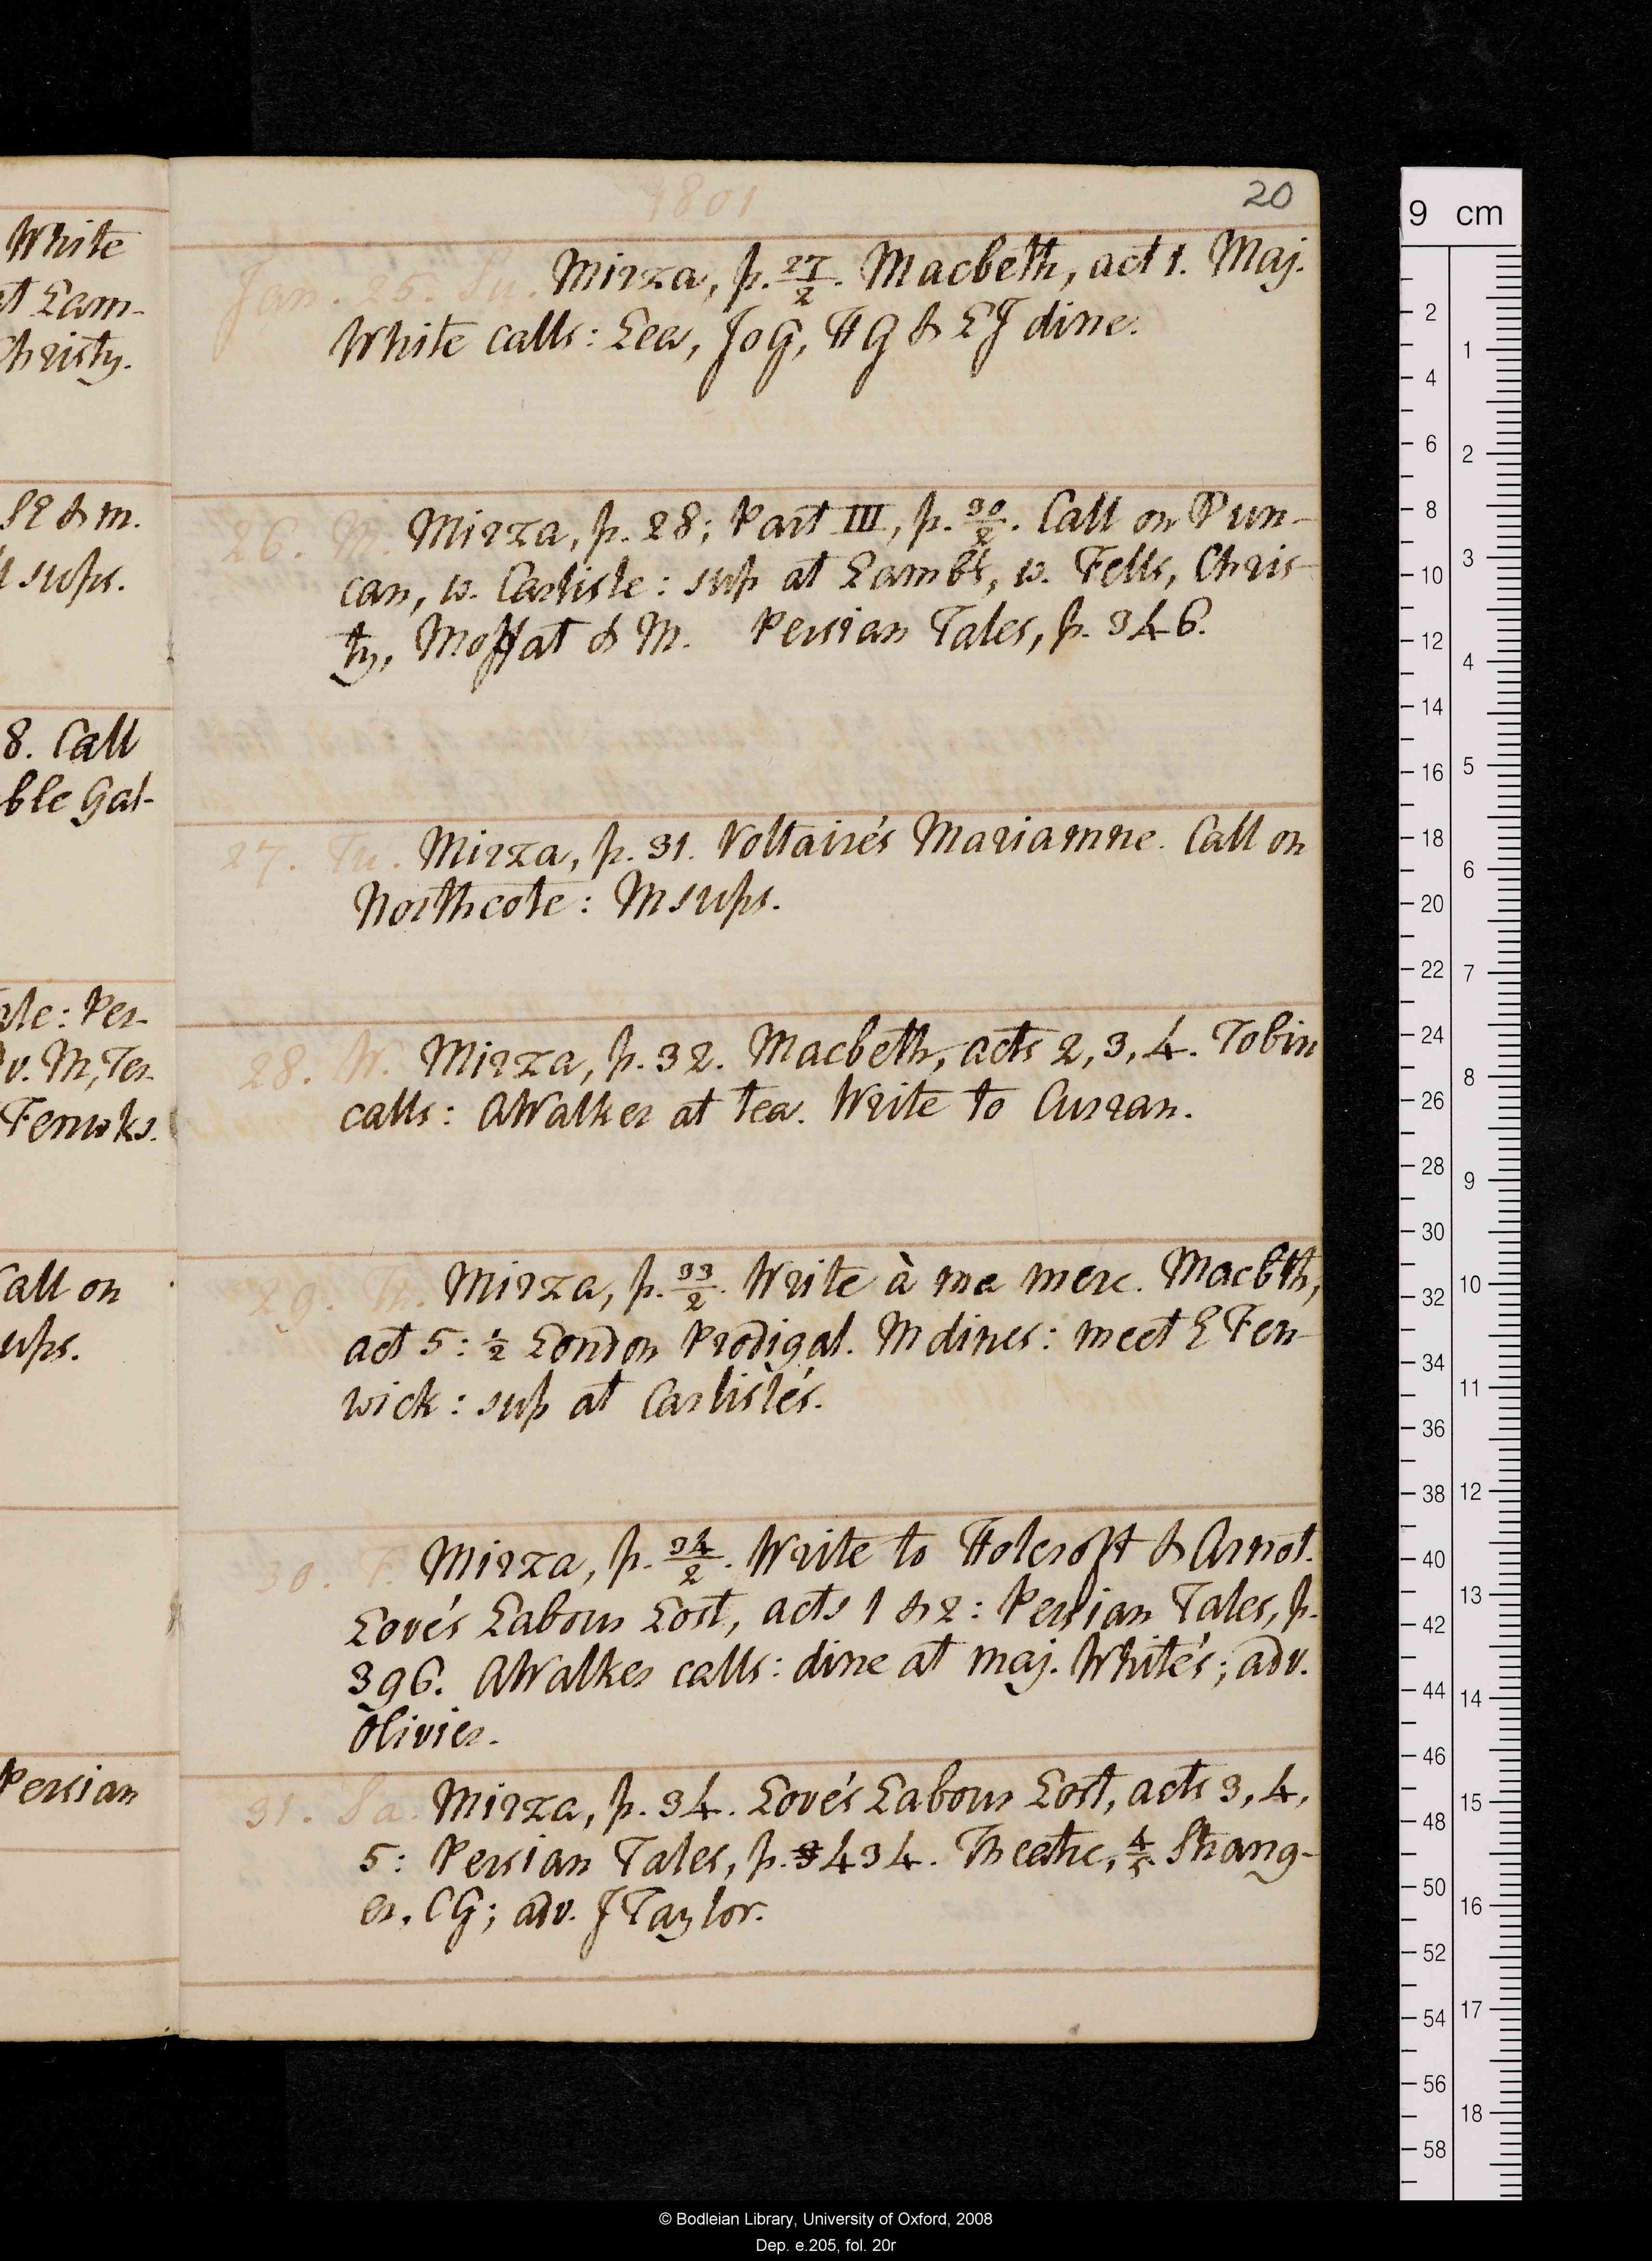 White
at Lam-
Christy.
SE & M.
sups.
8. Call
ble Gal-
ale: Per-
v. M, Ter-
Fenwks.
Call on
ups.
Persian
1801
20
Jan. 25. Su. Mirza, p. 27/2. Macbeth, act 1. Maj.
White calls: Lea, JoG, HG & LJ dine.
26. M. Mirza, p. 28; Part III, p. 30/2. Call on Dun-
can, w. Carlisle: sup at Lamb's, w. Fells, Chris-
ty, Moffat & M. Persian Tales, p. 346.
27. Tu. Mirza, p. 31. Voltaire's Mariamne. Call on
Northcote: M sups.
28. W. Mirza, p. 32. Macbeth, acts 2, 3, 4. Tobin
calls: AWalker at tea. Write to Curran.
29. Th. Mirza, p. 33/2. Write à ma mere. Macbth,
act 5: ½ London Prodigal. M dines: meet E Fen-
wick: sup at Carlisle's.
30. F. Mirza, p. 34/2. Write to Holcroft & Arnot.
Love's Labour Lost, acts 1 & 2: Persian Tales, p.
396. AWalker calls: dine at maj. White's; adv.
Olivier.
31. Sa. Mirza, p. 34. Love's Labour Lost, acts 3, 4,
5: Persian Tales, p. 434. Theatre, 4/5 Strang-
er, CG; adv. J Taylor.
9 cm
2
4
6
8
10
12
14
16
18
20
22
24
26
28
30
32
34
36
38
40
42
44
46
48
50
52
54
56
58
1
2
3
4
5
6
7
8
9
10
11
12
13
14
15
16
17
18
© Bodleian Library, University of Oxford, 2008
Dep. e.205, fol. 20r